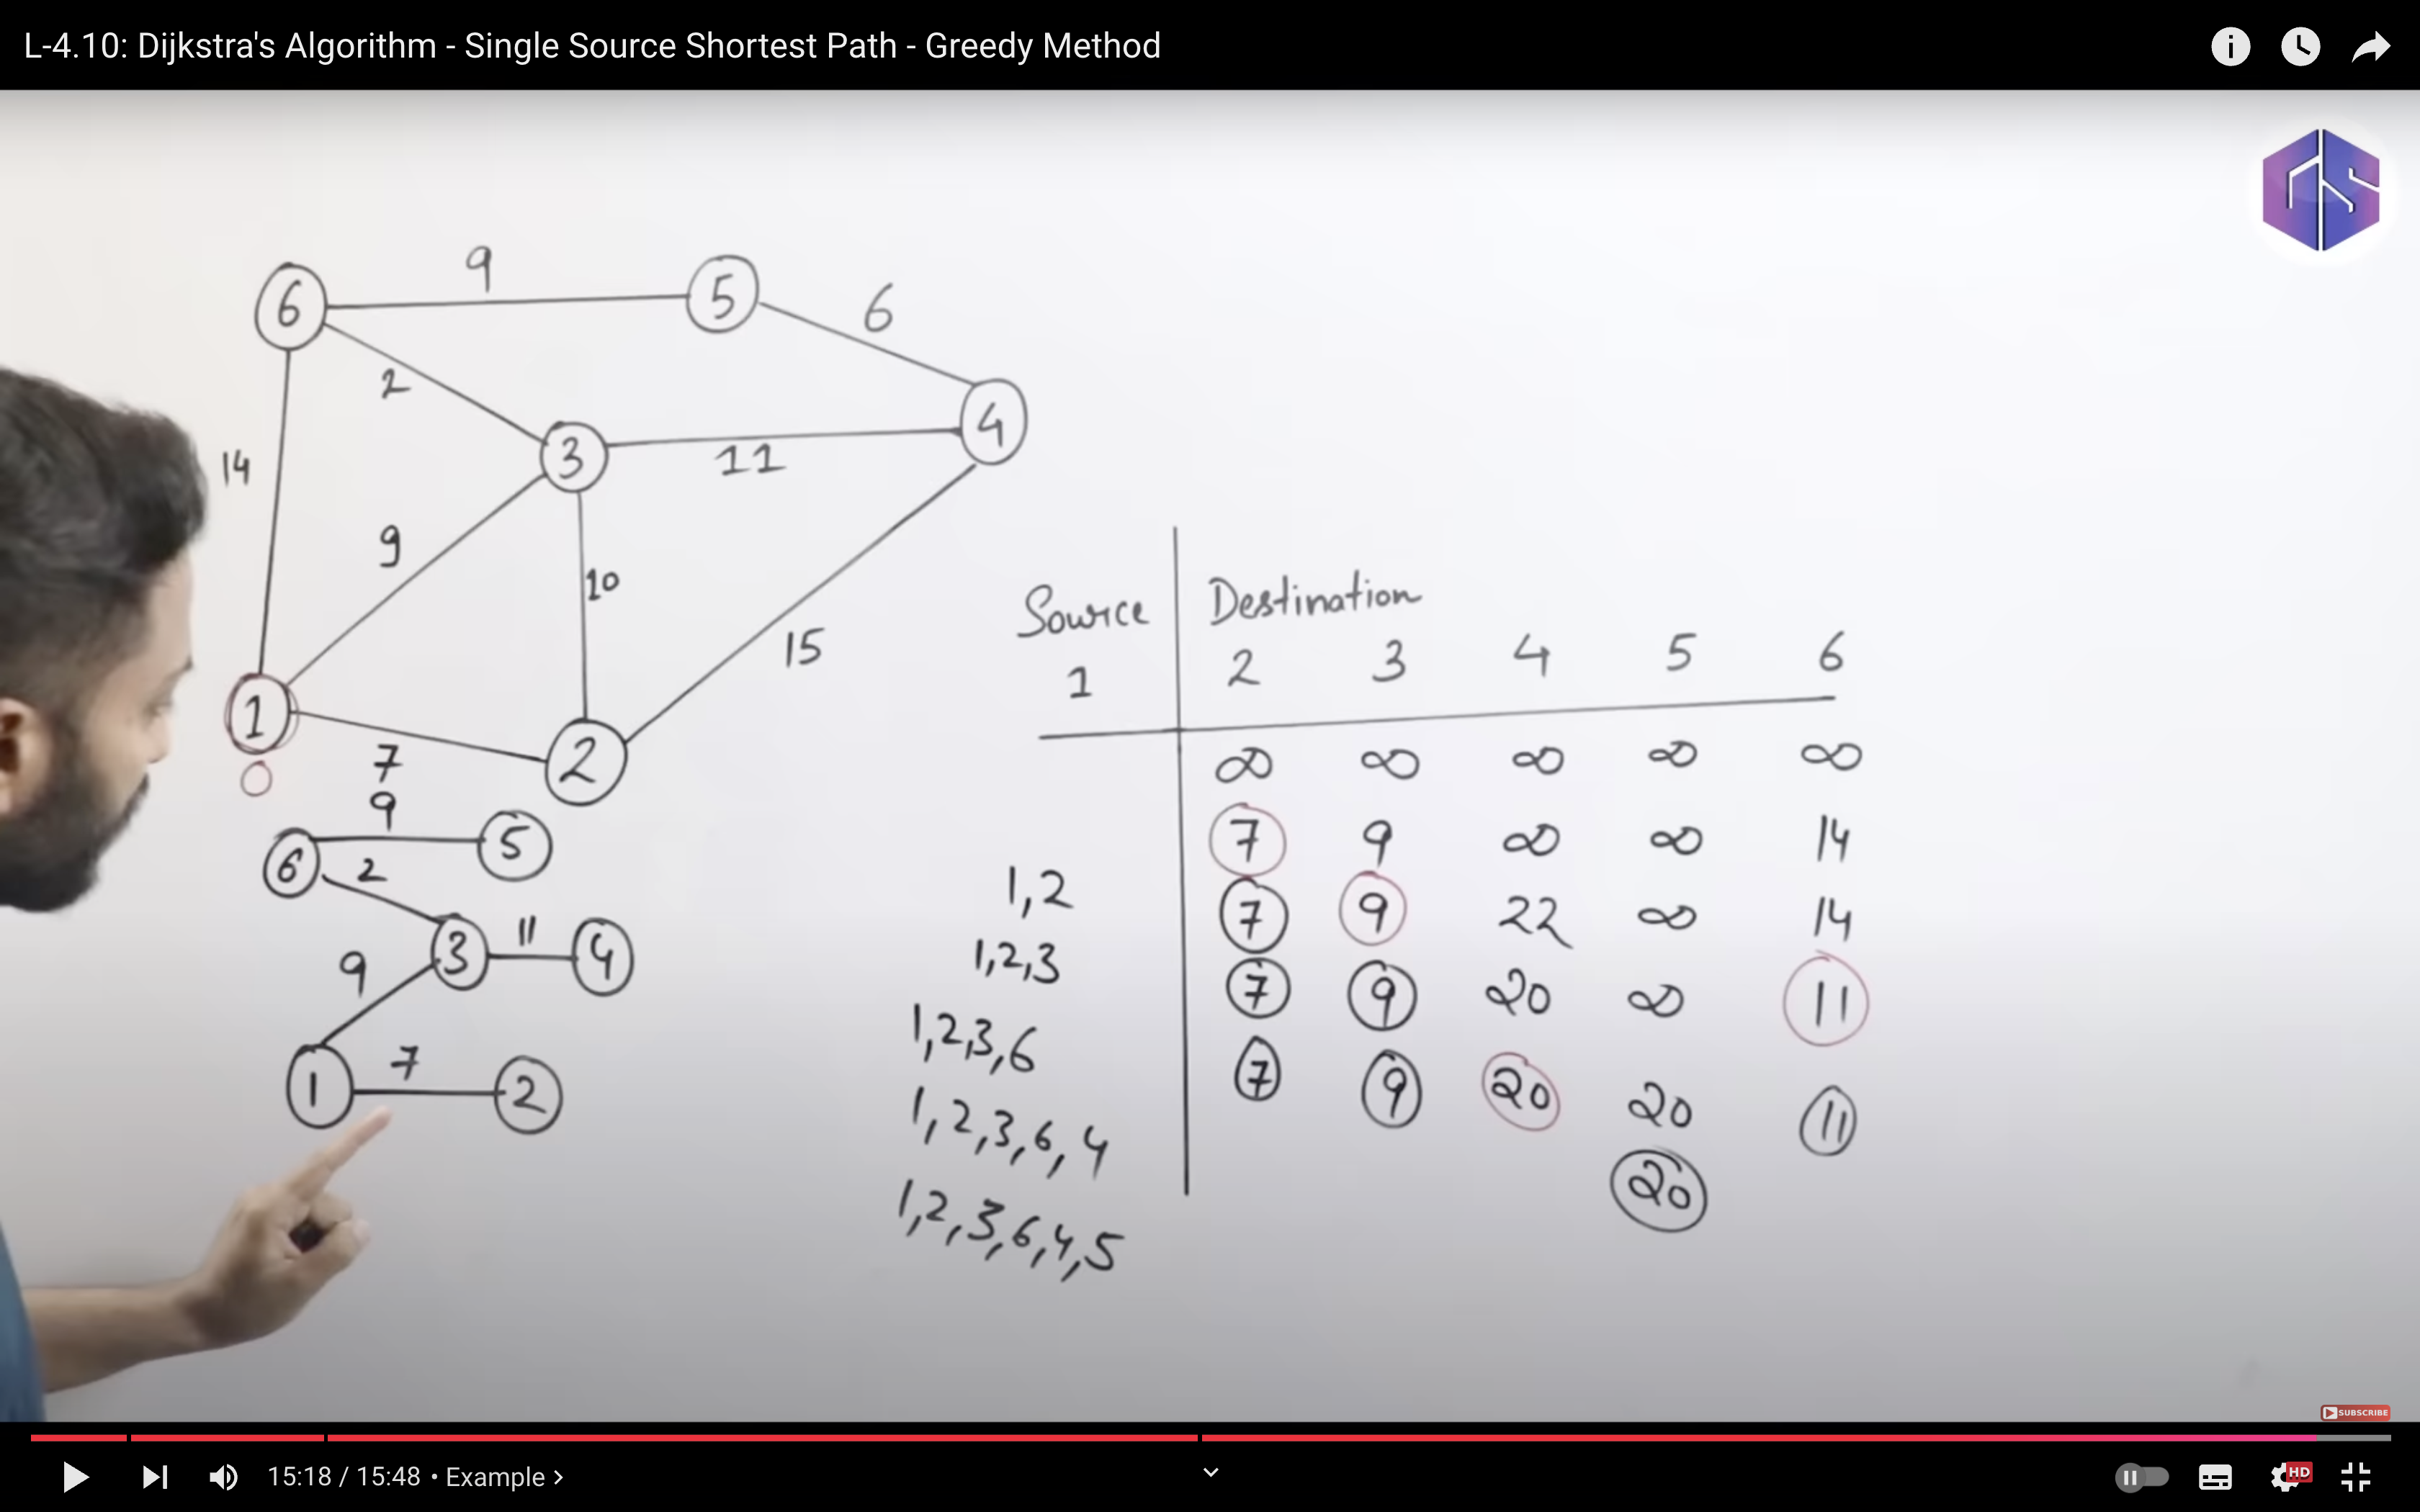 L-4.10: Dijkstra's Algorithm - Single Source Shortest Path - Greedy Method
9
6
5
6
2
4
3
11
14
9
10
15
1
2
7
0
Source
Destination
1
2 3 4 5 6
∞ ∞ ∞ ∞ ∞
7 9 ∞ ∞ 14
1,2 7 9 22 ∞ 14
1,2,3 7 9 20 ∞ 11
1,2,3,6 7 9 20 20 11
1,2,3,6,4 20
1,2,3,6,4,5
9
6
5
2
3
11
4
9
1
7
2
SUBSCRIBE
15:18 / 15:48 • Example >
HD